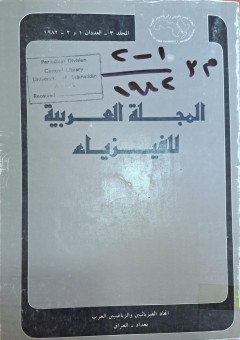 المجلد ٣ - العددان ١ و ٢ - ١٩٨٢
Periodical Division
Central Library
University of Salahuddin
Received
م ٣
١-٢
١٩٨٢
المجلة العربية
للفيزياء
اتحاد الفيزيائيين والرياضيين العرب
بغداد - العراق